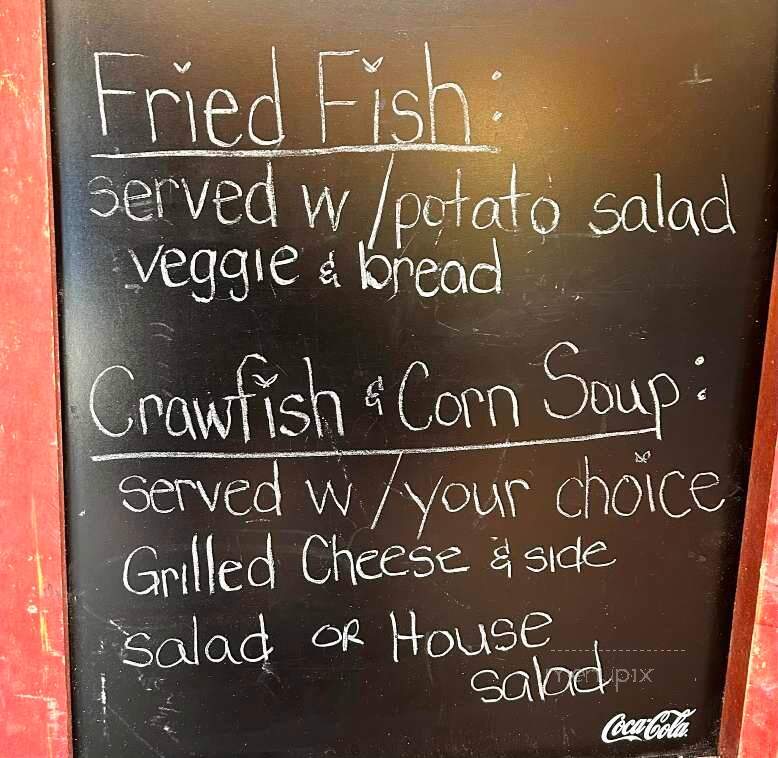 Fried Fish:
served w/potato salad
veggie & bread
Crawfish & Corn Soup:
served w/your choice
Grilled Cheese & side
salad OR House
salad
menupix
Coca-Cola